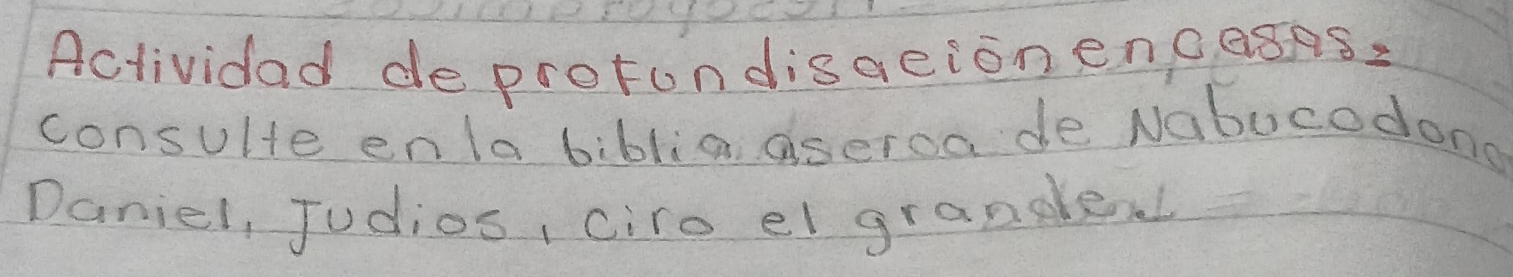 Actividad de profundisacion en casas:
consulte en la biblia aserca de Nabucodono
Daniel, Judios, ciro el grande.